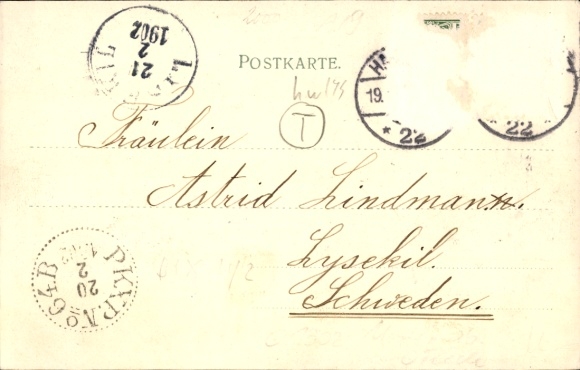 21
2
1902
POSTKARTE.
19.
* 22
22
T
Fräulein
Astrid Lindmann.
Lysekil.
Schweden.
PKXP. No 64. B
20
2